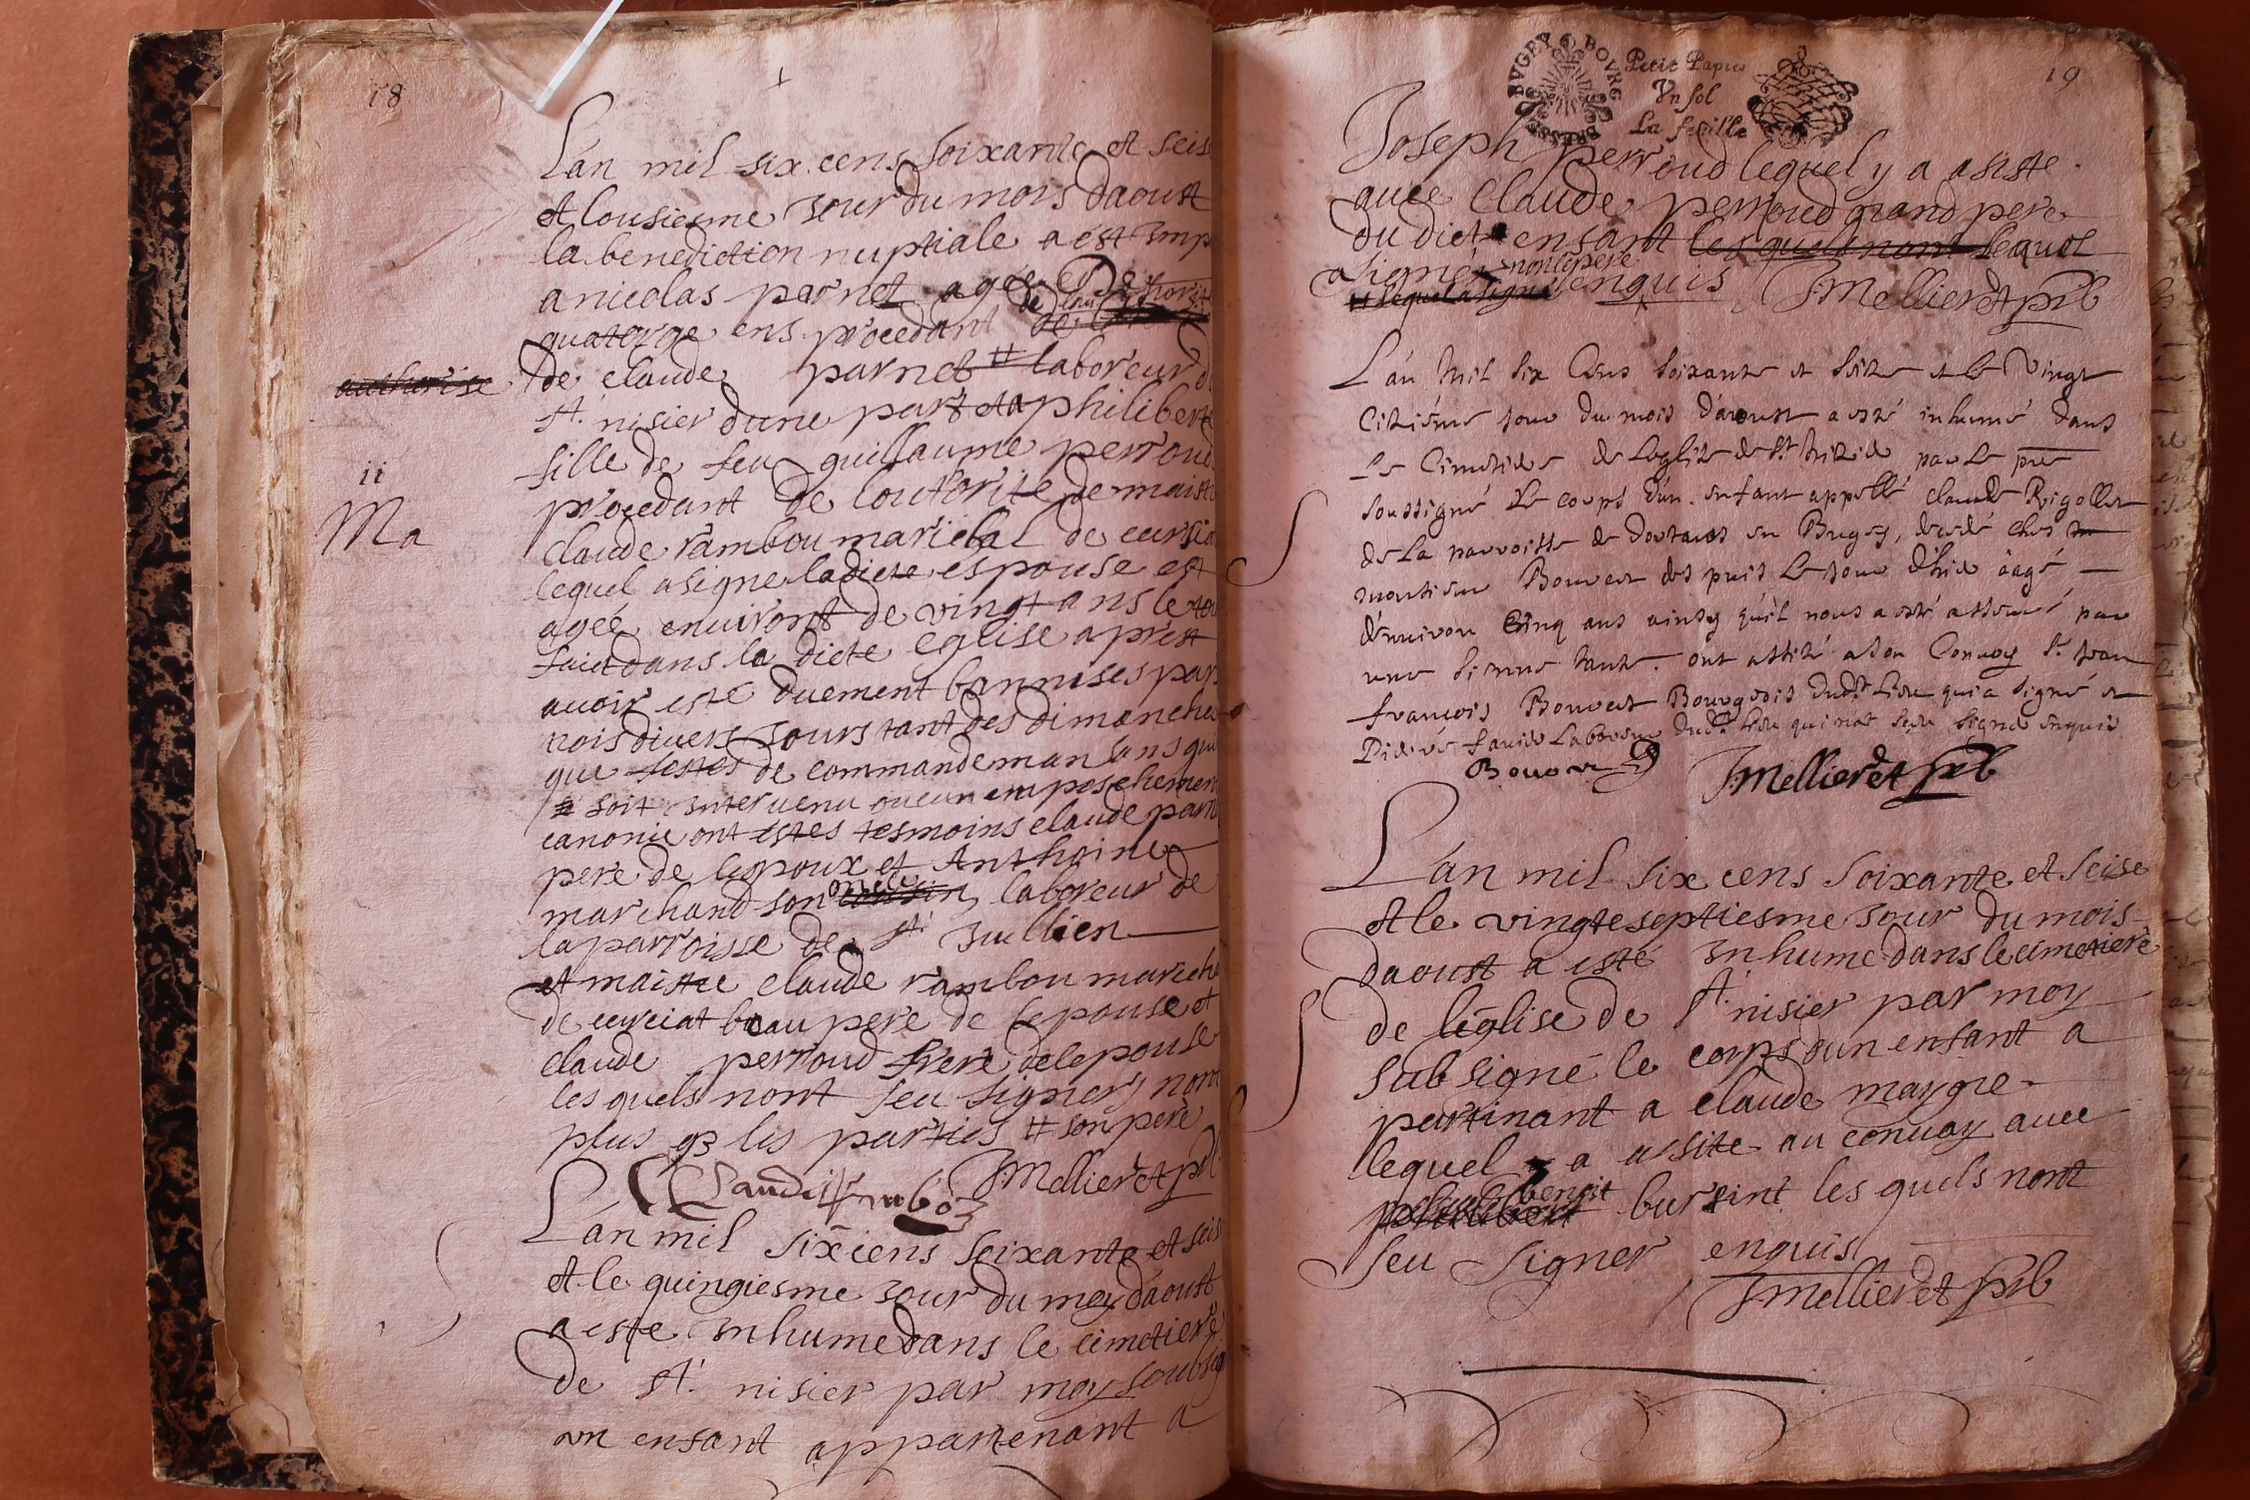 18
L'an mil six cens soixante et seis
et l'onsiesme jour du mois daoust
la benediction nuptiale a est imp
a nicolas parnet agé de
quatorze ens procedant de
authorise
de claude parnet # laboreur d
St. nisier dune part et a philibert
fille de feu guillaume perroud
procedant de loutorite de maist
ii
Ma
claude rambou marichal de cursia
lequel a signe ladicte espouse est
agée environt de vingt ans le tou
faict dans la dicte eglise aprest
avoir esté duement bannises par
trois divers jours tant des dimanches
que festes de commandeman sans qui
soit intervenu aucun empeschement
canonic ont estes tesmoins claude parn
pere de lepoux et Anthoine
marchand son oncle cousin laboreur de
la parroisse de St. jullien
et maistre claude rambou marich
de curciat beau pere de lepouse et
claude perroud frere de lepouse
les quels nont seu signer nom
plus que les parties # son pere
Claude Rambo JMellieret pbr
L'an mil six cens soixante et seis
et le quinziesme jour du moy daoust
a este inhume dans le cimetiere
de St. nisier par moy soubsig
un enfant appartenant a
BRESSE BUGEY BOURG
Petit Papier
Un sol
La feuille
19
Joseph perroud lequel y a asisté
avec Claude perroud grand pere
du dict enfant les quels nont lequel
a signé non le pere enquis JMellieret pbr
# lequel a signé
L'an Mil six Cens soixante et seize et le Vingt
sixiéme jour du mois d'aoust a esté inhumé dans
Le Cimetiere de Leglize de St. Nizier par Le pre
soussigné Le corps d'un enfant appellé claude Rigollet
de La parroisse de Dortans en Bugey, decedé chez
monsieur Bouvert des puis Le jour d'hier âagé
d'environ Cinq ans ainsy qu'il nous a esté asseuré par
une sienne tante. ont assisté a son Convoy Sr. Jean
françois Bouvert Bourgeois dudt. Lieu qui a signé et
Pierre favier Laboreur dudt. Lieu qui n'at sceu signer enquis
Bouver JMellieret pbr
L'an mil six cens soixante et seise
et le vingte septiesme jour du mois
daoust a esté inhume dans le cimetiere
de l'eglise de St. nisier par moy
sub signé le corps dun enfant a
partinant a claude maygre
lequel y a asite au convoy avec
philibert benoit bursint les quels nont
seu signer enquis
JMellieret pbr